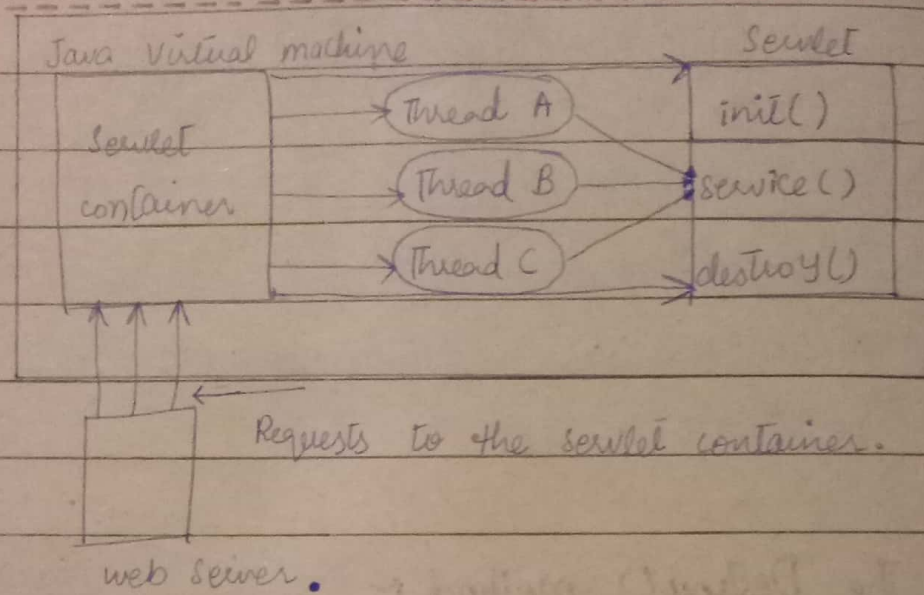 Java Virtual machine
Servlet
Servlet
container
Thread A
Thread B
Thread C
init()
service()
destroy()
Requests to the servlet container.
web server.